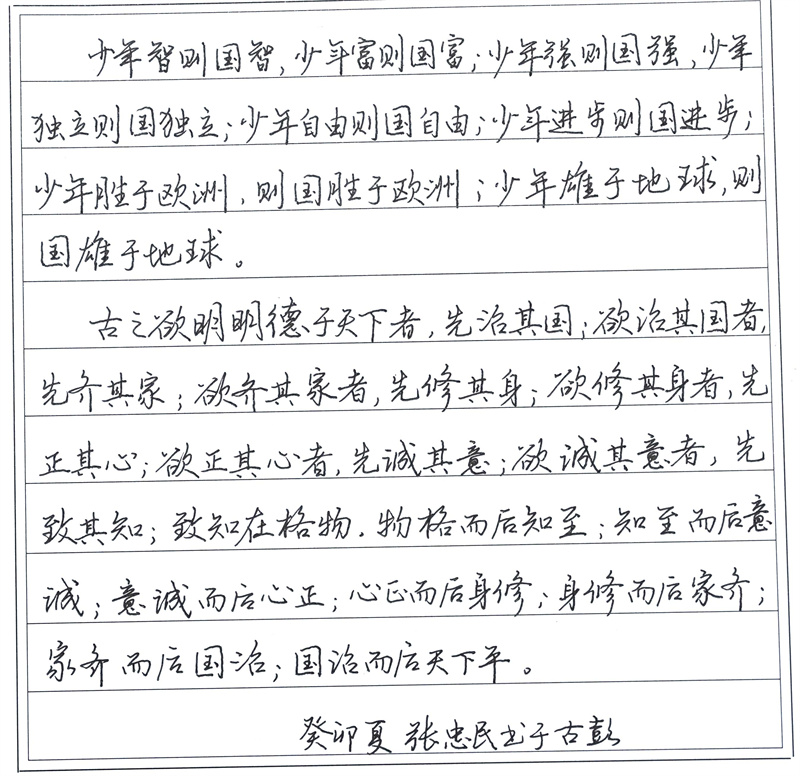 少年智则国智，少年富则国富；少年强则国强，少年
独立则国独立；少年自由则国自由；少年进步则国进步；
少年胜于欧洲，则国胜于欧洲；少年雄于地球，则
国雄于地球。
古之欲明明德于天下者，先治其国；欲治其国者，
先齐其家；欲齐其家者，先修其身；欲修其身者，先
正其心；欲正其心者，先诚其意；欲诚其意者，先
致其知；致知在格物．物格而后知至；知至而后意
诚；意诚而后心正；心正而后身修；身修而后家齐；
家齐而后国治；国治而后天下平。
癸卯夏 张忠民书于古彭